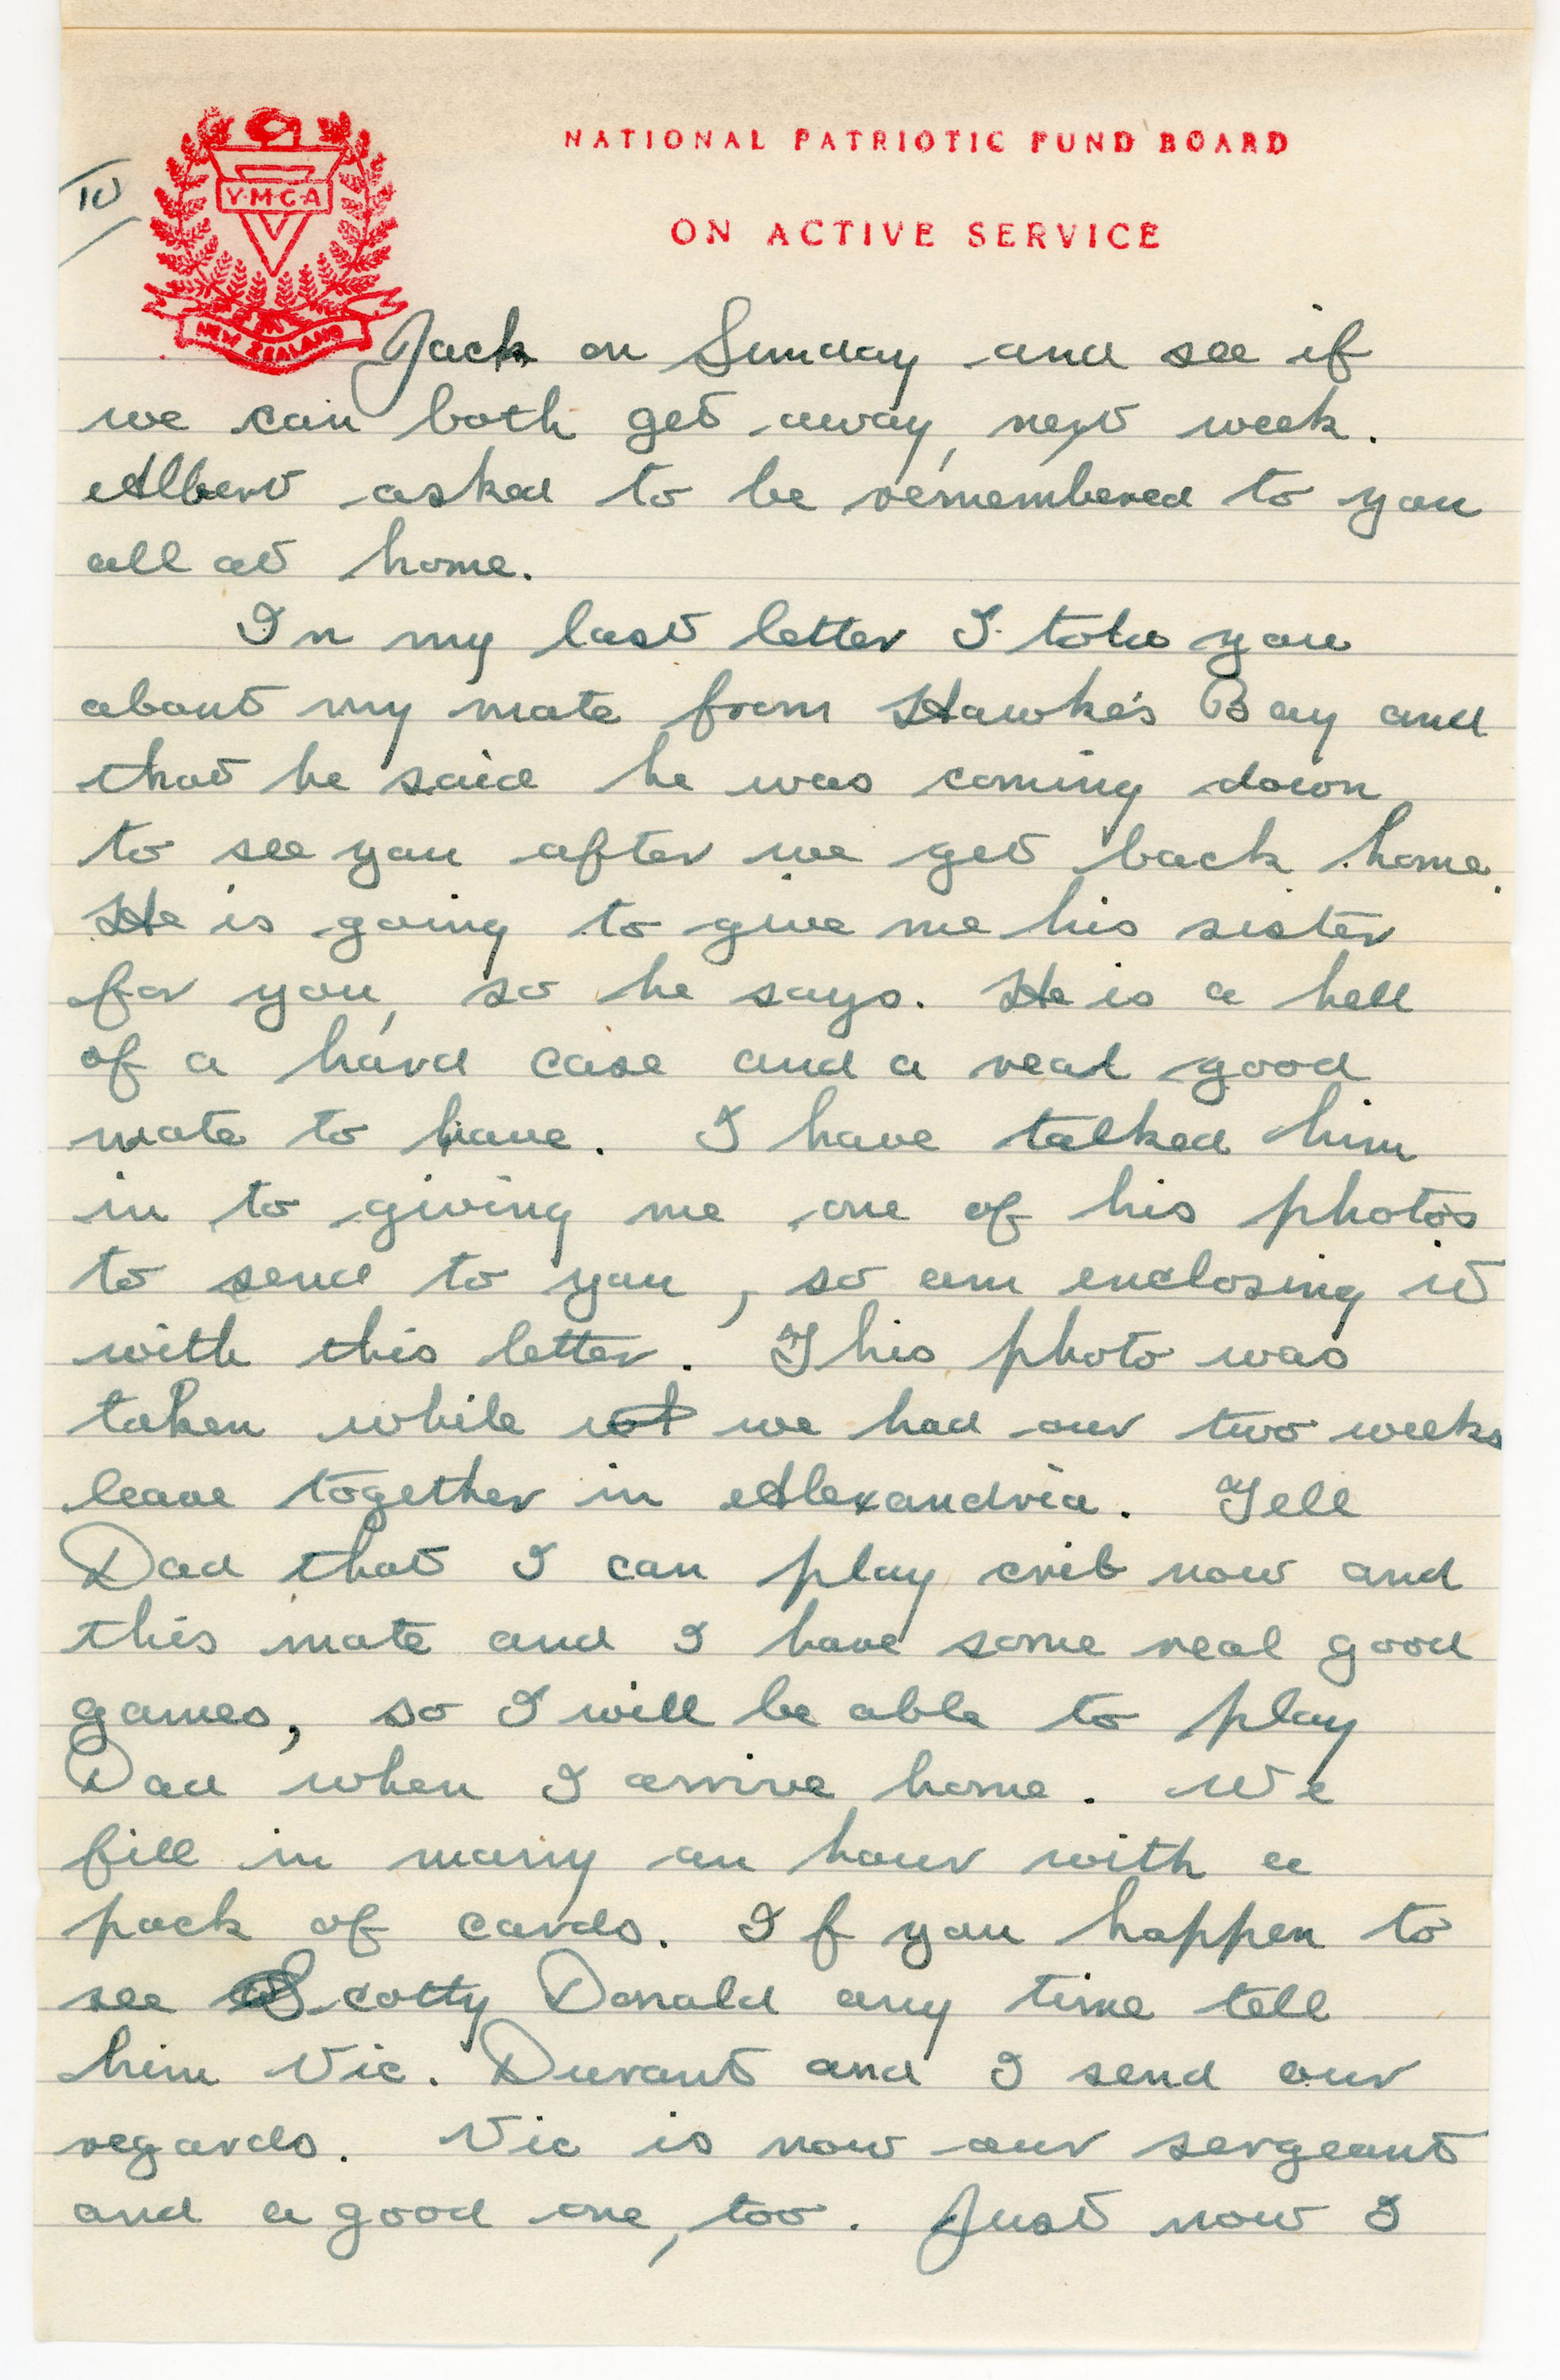 NATIONAL PATRIOTIC FUND BOARD
ON ACTIVE SERVICE
Y.M.C.A
NEW ZEALAND
Jack on Sunday and see if
we can both get away, next week.
Albert asked to be remembered to you
all at home.
In my last letter I told you
about my mate from Hawke's Bay and
that he said he was coming down
to see you after we get back home.
He is going to give me his sister
for you, so he says. He is a hell
of a hard case and a real good
mate to have. I have talked him
in to giving me one of his photos
to send to you, so am enclosing it
with this letter. This photo was
taken while we had our two weeks
leave together in Alexandria. Tell
Dad that I can play crib now and
this mate and I have some real good
games, so I will be able to play
Dad when I arrive home. We
fill in many an hour with a
pack of cards. If you happen to
see Scotty Donald any time tell
him Vic. Durant and I send our
regards. Vic is now our sergeant
and a good one, too. Just now I